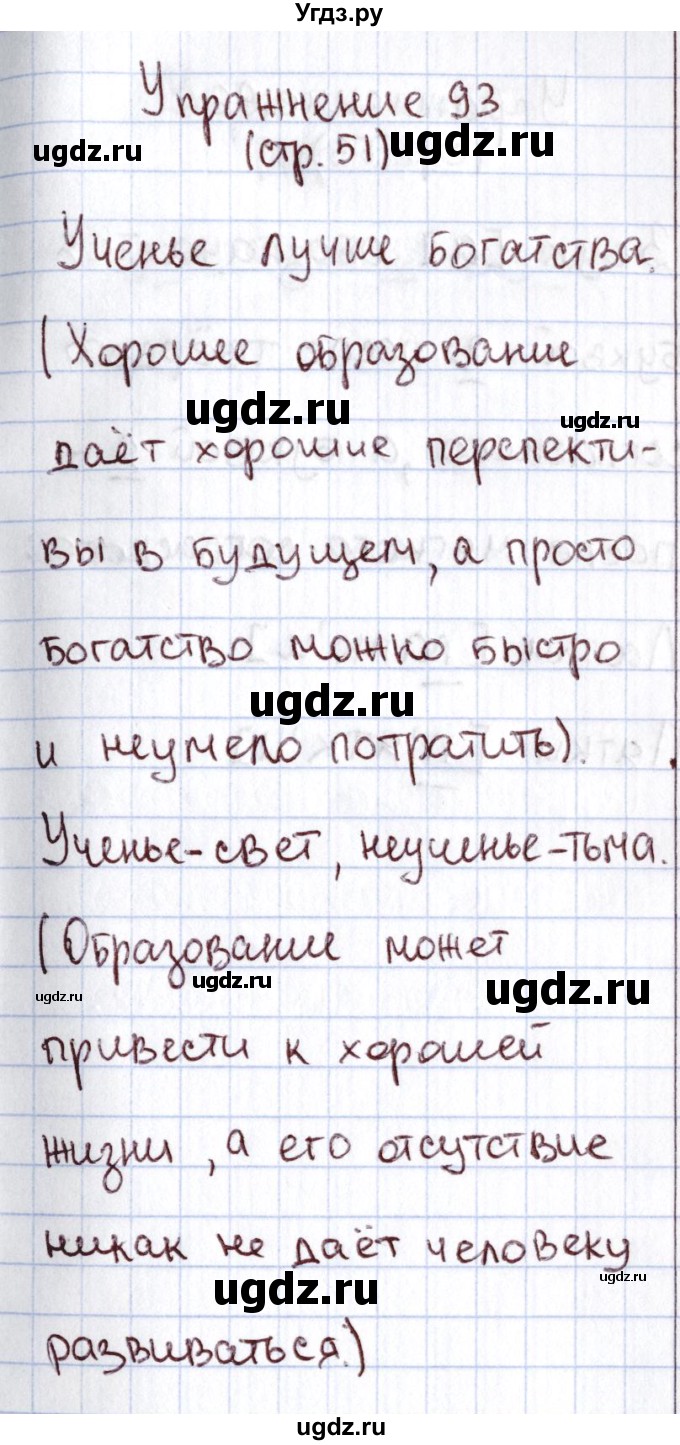 Угдз.ру
Упражнение 93
ugdz.ru
(стр. 51)
ugdz.ru
Ученье лучше богатства.
(Хорошее образование
ugdz.ru
ugdz.ru
даёт хорошие перспекти-
вы в будущем, а просто
богатство можно быстро
ugdz.ru
и неумело потратить).
Ученье-свет, неученье-тьма.
(Образование может
ugdz.ru
ugdz.ru
ugdz.ru
привести к хорошей
жизни, а его отсутствие
никак не даёт человеку
ugdz.ru
ugdz.ru
развиваться.)
ugdz.ru